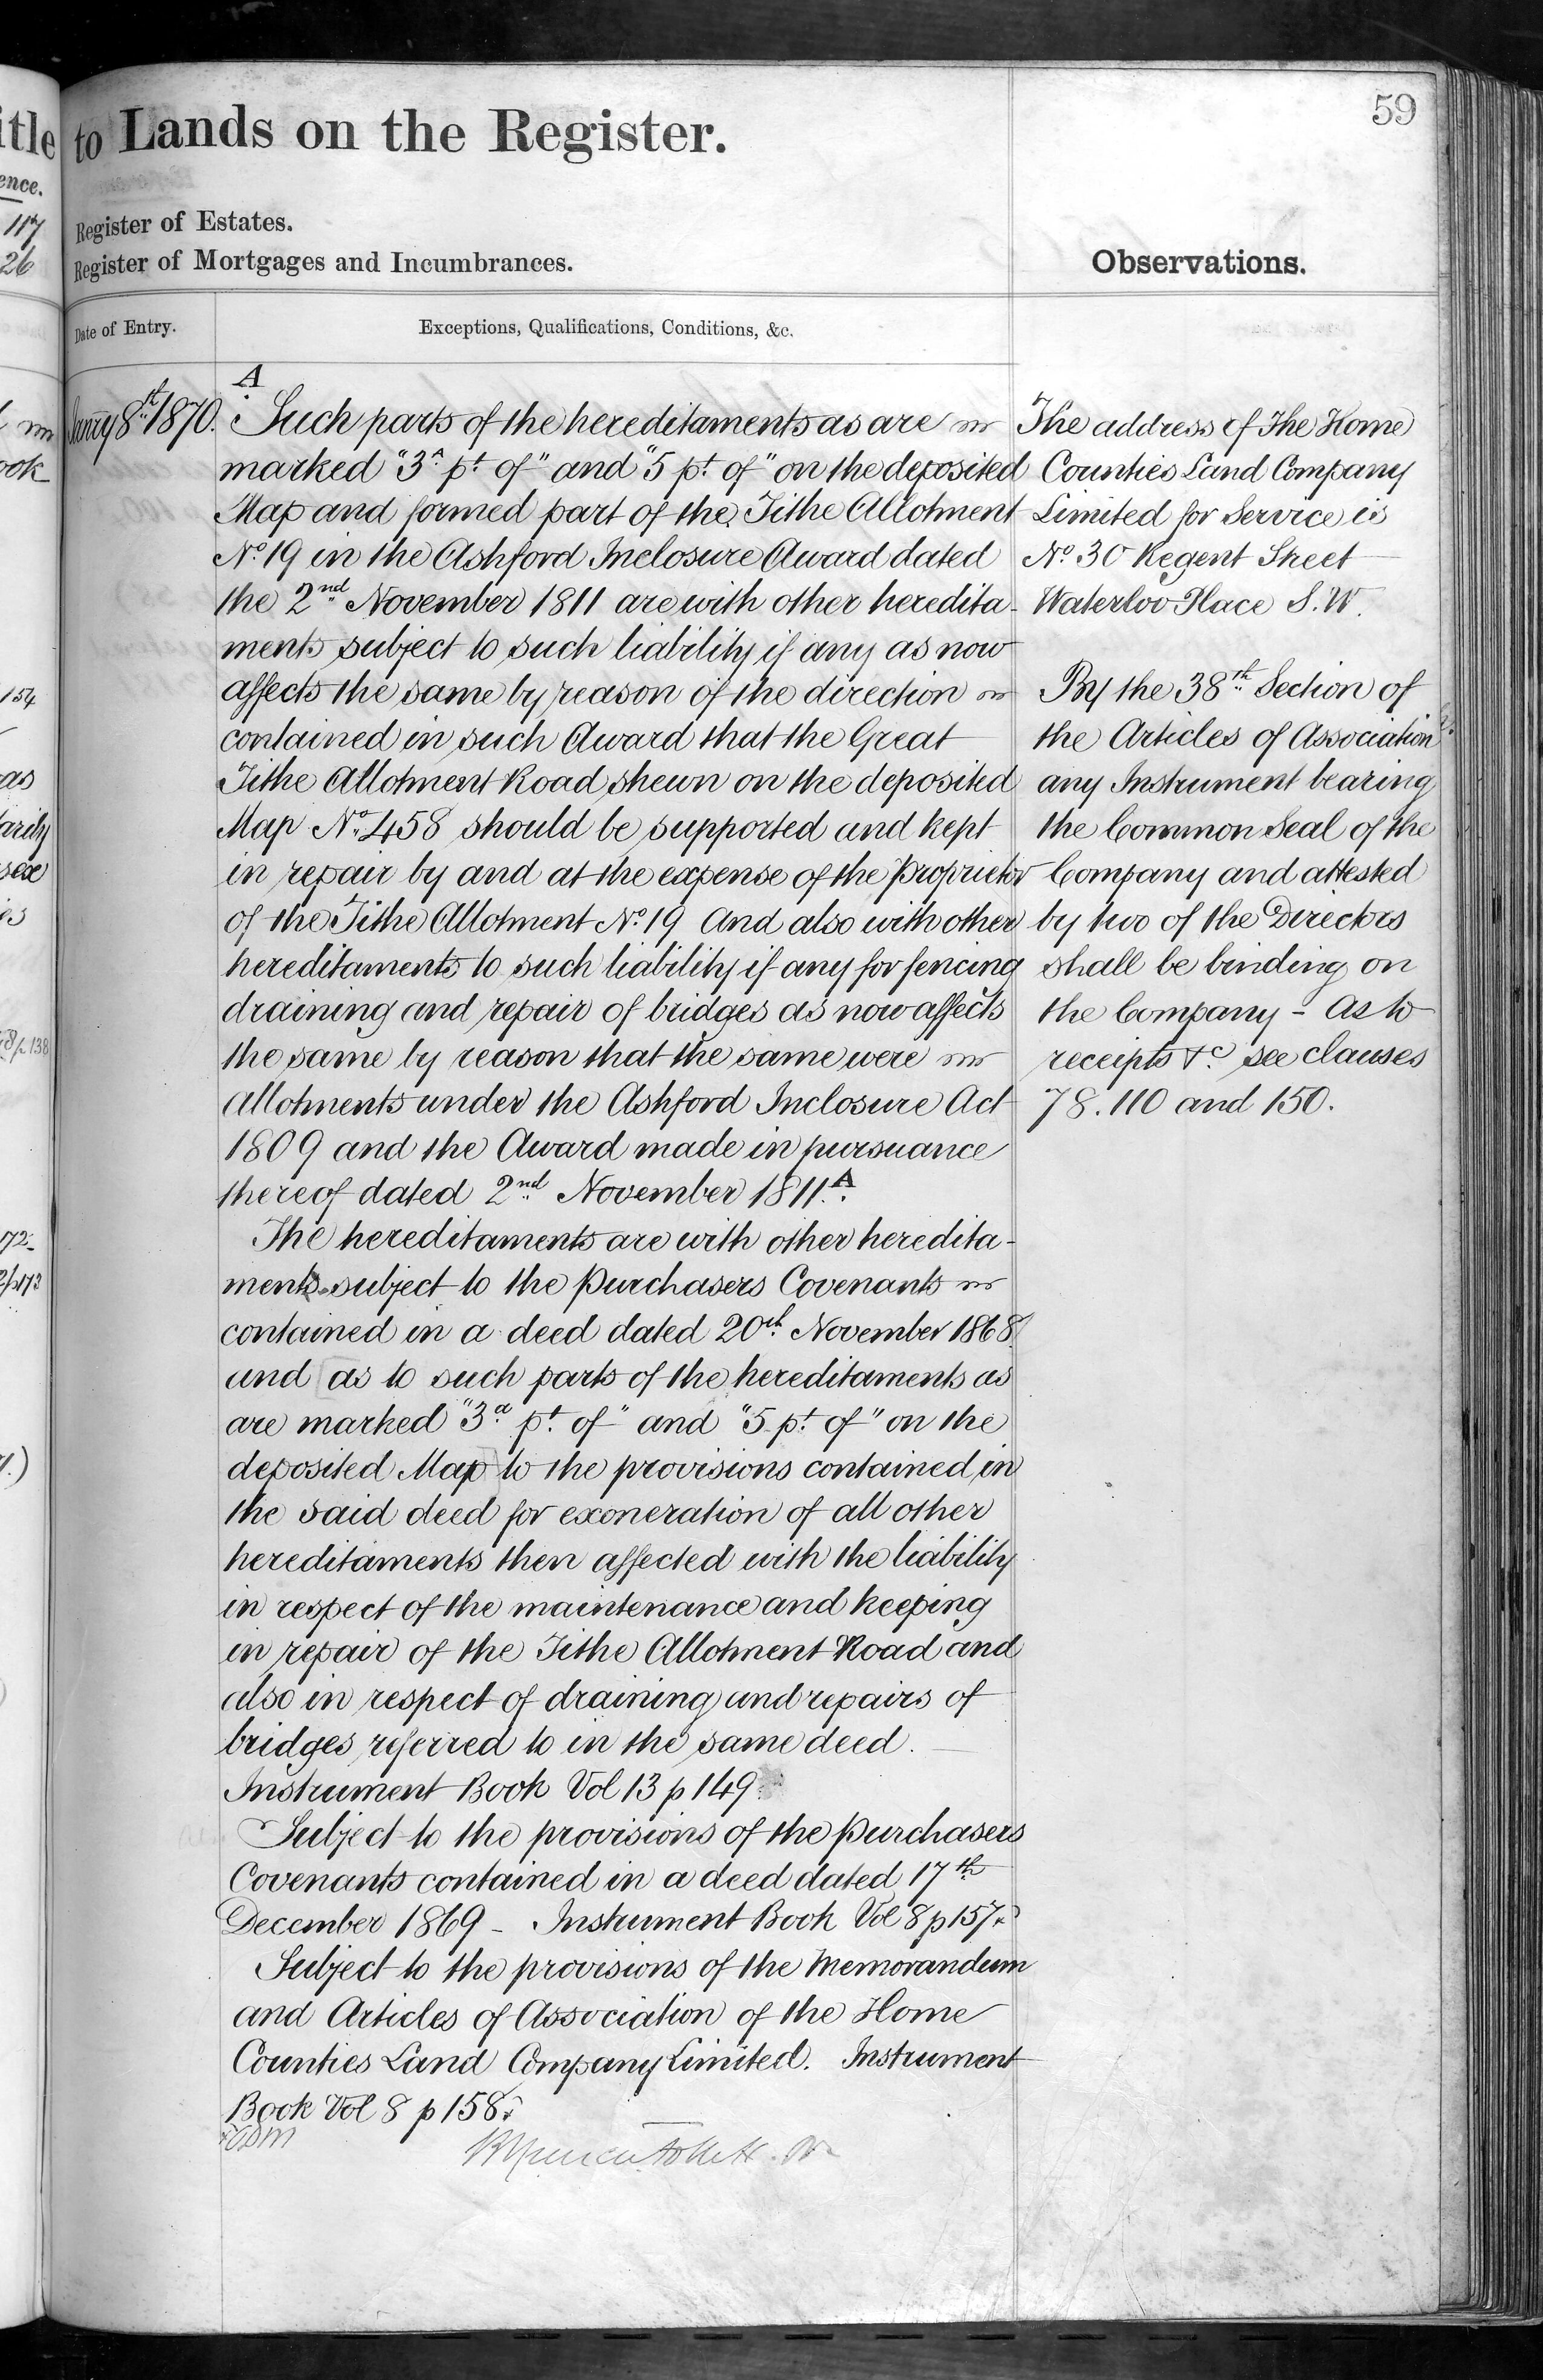 59
to Lands on the Register.
Register of Estates.
Register of Mortgages and Incumbrances.
Observations.
Date of Entry.
Exceptions, Qualifications, Conditions, &c.
Janry 8th 1870.
A
Such parts of the hereditaments as are
marked "3a pt of" and "5 pt of" on the deposited
Map and formed part of the Tithe Allotment
No 19 in the Ashford Inclosure Award dated
the 2nd November 1811 are with other heredita-
ments subject to such liability if any as now
affects the same by reason of the direction
contained in such Award that the Great
Tithe Allotment Road shewn on the deposited
Map No 458 should be supported and kept
in repair by and at the expense of the Proprietor
of the Tithe Allotment No 19 And also with other
hereditaments to such liability if any for fencing
draining and repair of bridges as now affects
the same by reason that the same were
allotments under the Ashford Inclosure Act
1809 and the Award made in pursuance
thereof dated 2nd November 1811. A
The hereditaments are with other heredita-
ments subject to the Purchasers Covenants
contained in a deed dated 20th November 1868
and as to such parts of the hereditaments as
are marked "3a pt of" and "5 pt of" on the
deposited Map to the provisions contained in
the said deed for exoneration of all other
hereditaments then affected with the liability
in respect of the maintenance and keeping
in repair of the Tithe Allotment Road and
also in respect of draining and repairs of
bridges referred to in the same deed.
Instrument Book Vol 13 p 149
Subject to the provisions of the Purchasers
Covenants contained in a deed dated 17th
December 1869 - Instrument Book Vol 8 p 157.
Subject to the provisions of the Memorandum
and Articles of Association of the Home
Counties Land Company Limited. Instrument
Book Vol 8 p 158.
The address of The Home
Counties Land Company
Limited for Service is
No 30 Regent Street
Waterloo Place S.W.
By the 38th Section of
the Articles of Association
any Instrument bearing
the Common Seal of the
Company and attested
by two of the Directors
shall be binding on
the Company - As to
receipts &c see clauses
78. 110 and 150.